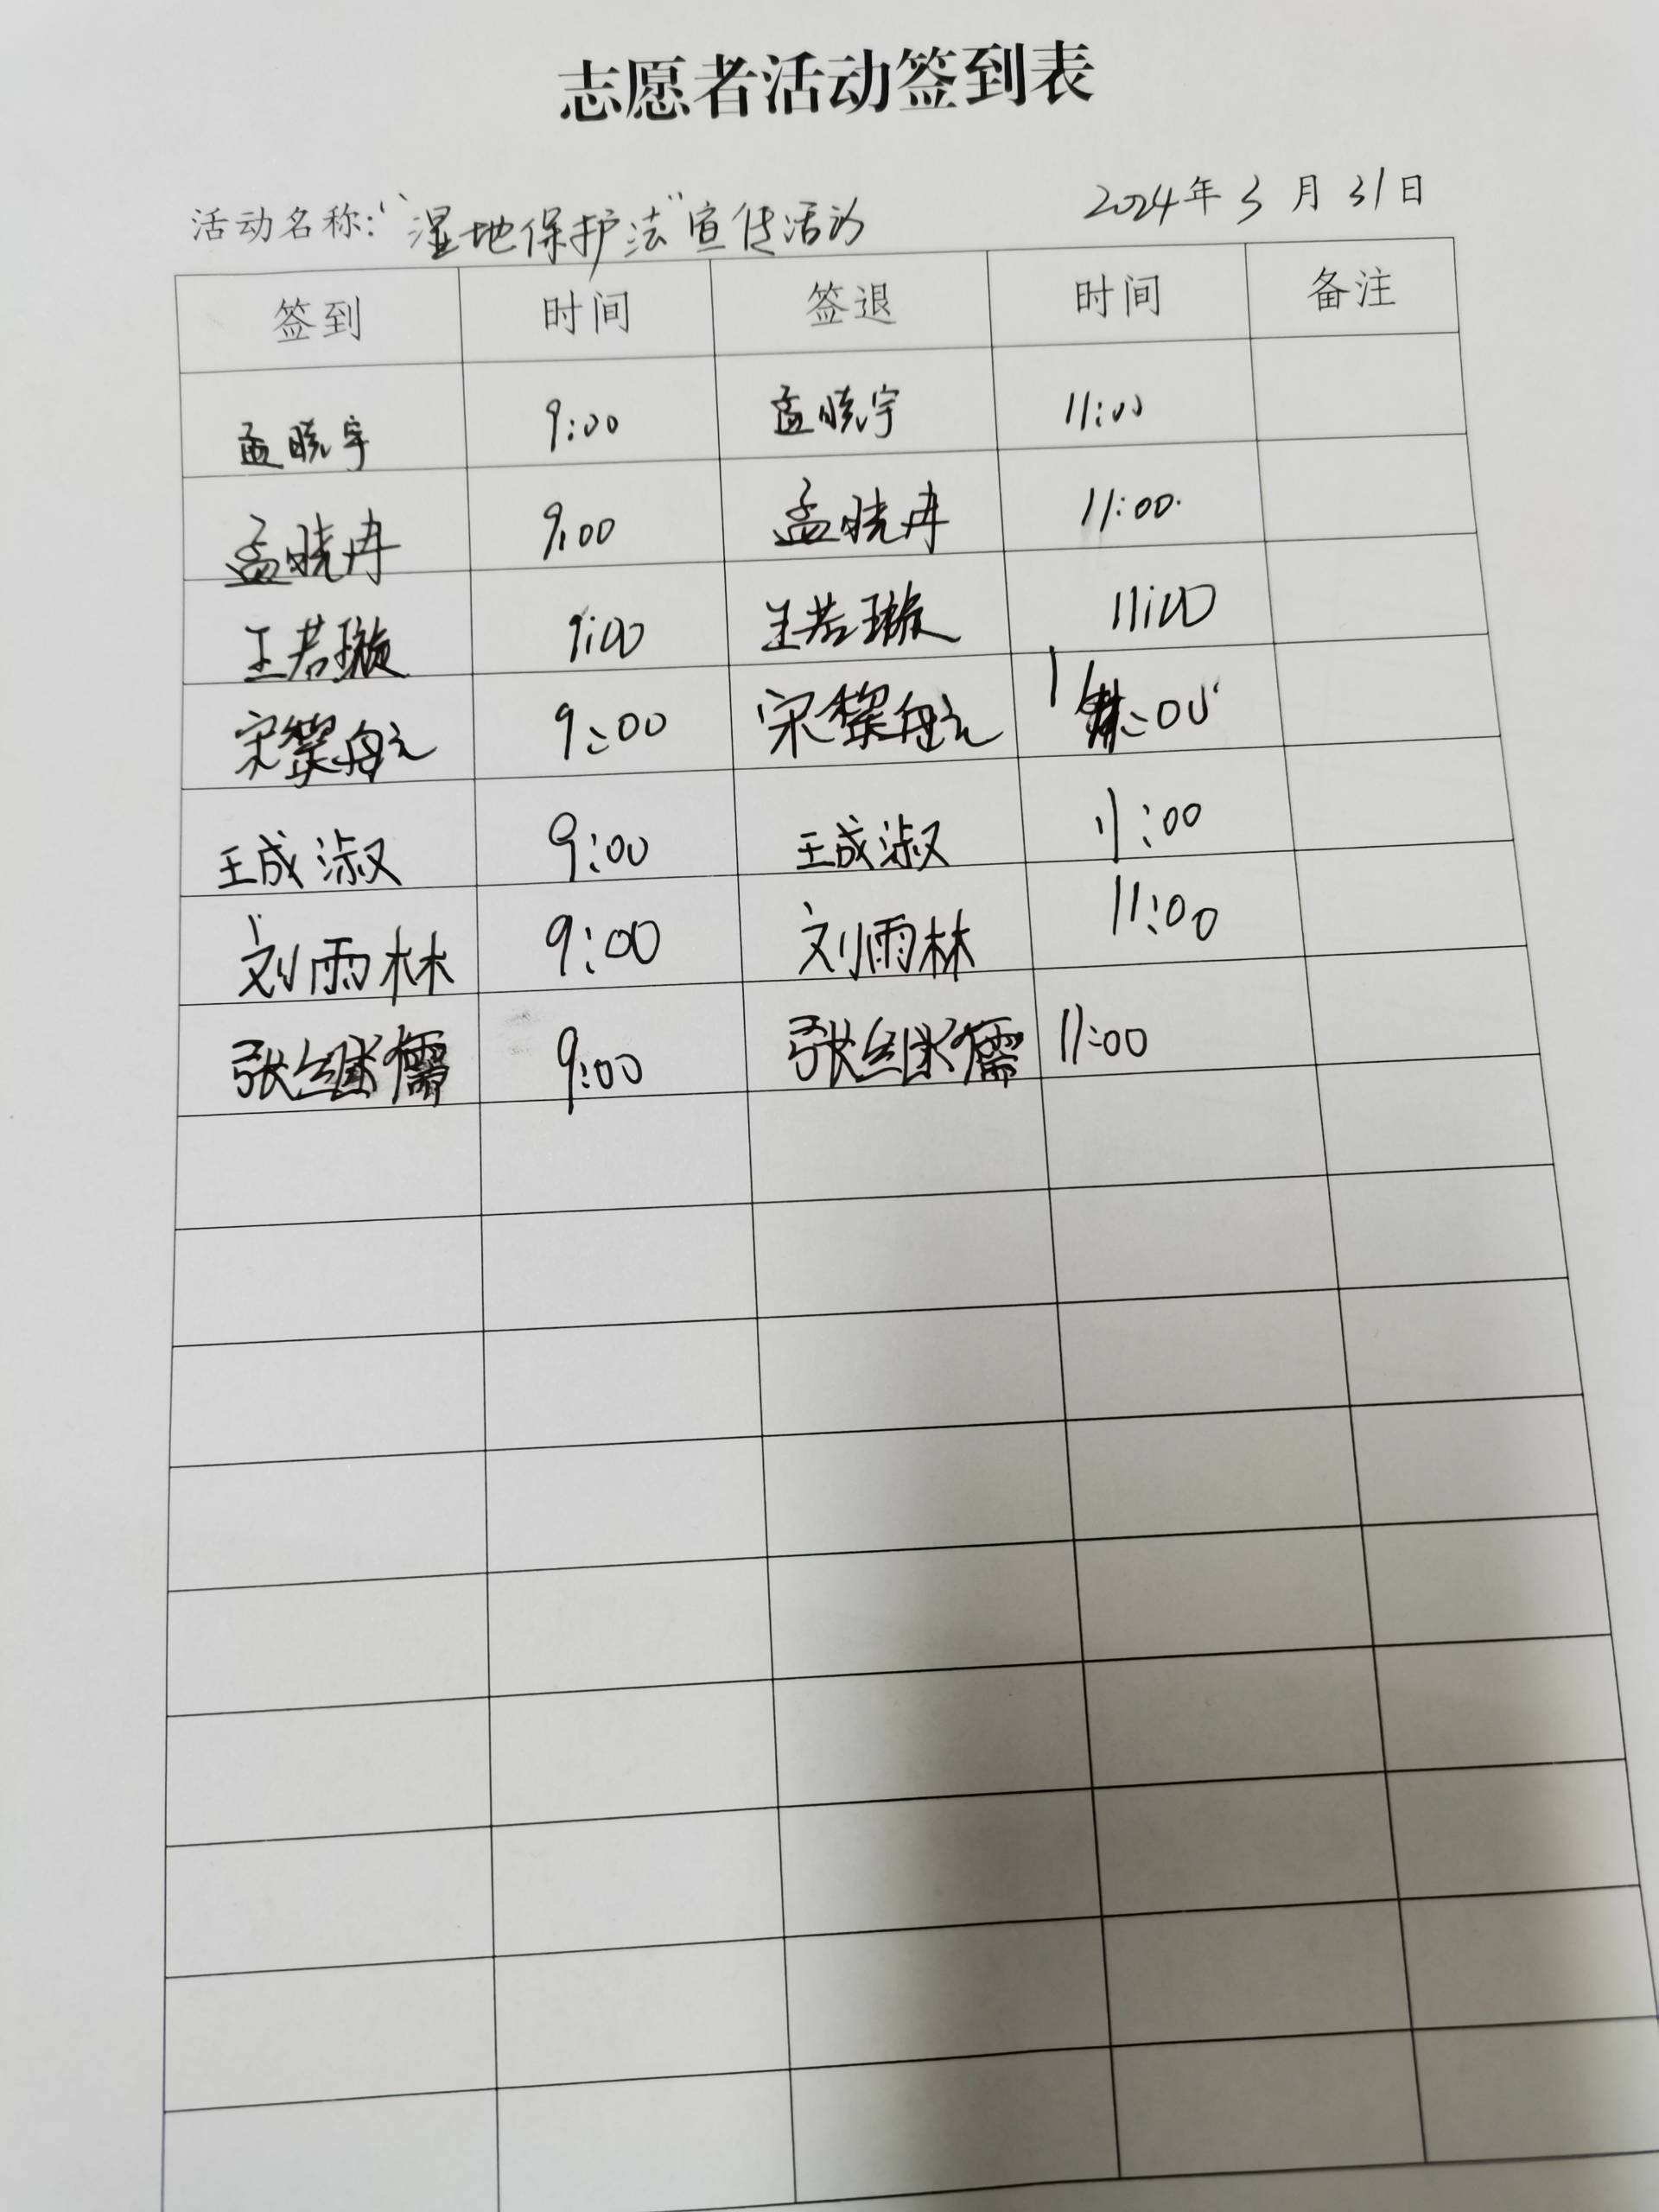 志愿者活动签到表
活动名称:“湿地保护法”宣传活动 2024年3月31日
签到 时间 签退 时间 备注
孟晓宇 9:00 孟晓宇 11:00
孟晓冉 9:00 孟晓冉 11:00
王若璇 9:00 王若璇 11:00
宋黎航 9:00 宋黎航 11:00
王成淑 9:00 王成淑 11:00
刘雨林 9:00 刘雨林 11:00
张继儒 9:00 张继儒 11:00